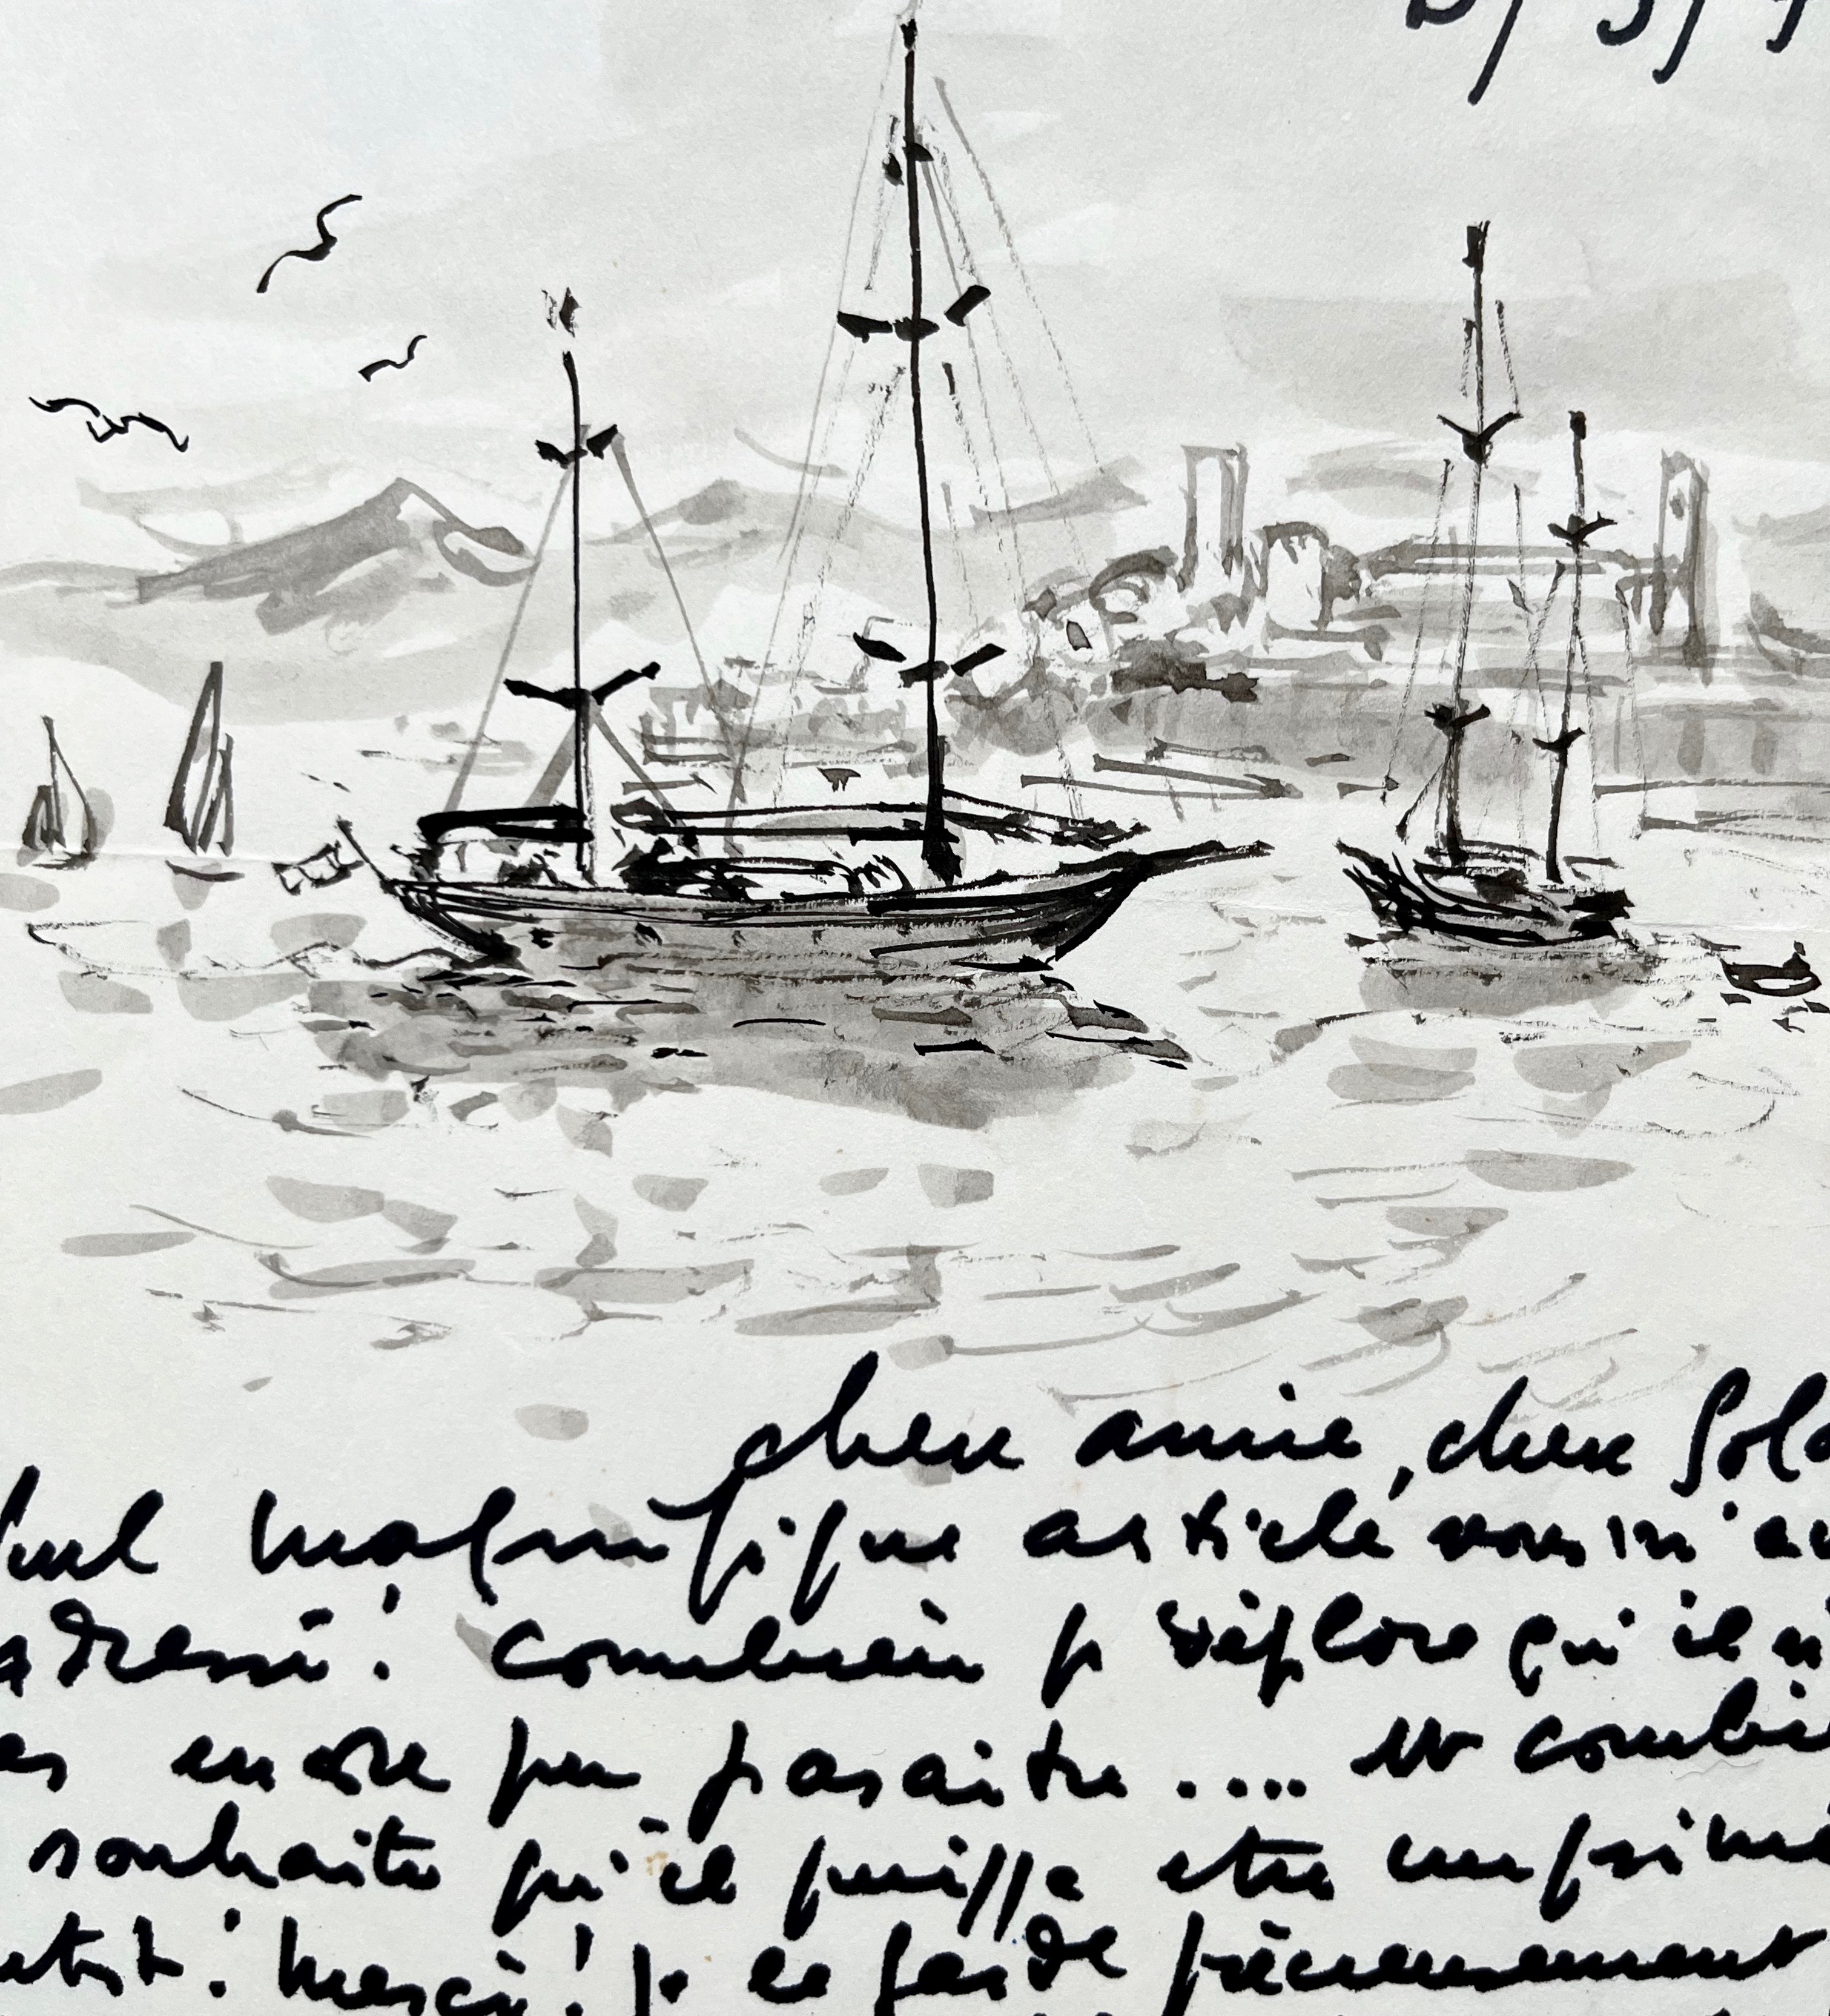 chere amie, chere
quel magnifique article vous m'a
adressé! combien je déplore qu'il n'
encore pu paraitre .... et combi
souhaite qu'il puisse etre imprimé
merci! je le garde précieusement